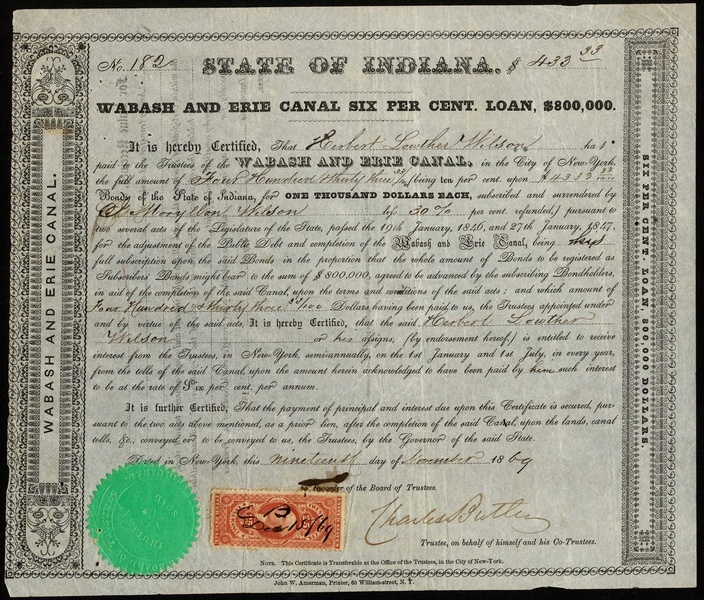 No. 182 STATE OF INDIANA. $ 433 33
WABASH AND ERIE CANAL SIX PER CENT. LOAN, $800,000.
It is hereby Certified, That Herbert Lowther Wilson has
paid to the Trustees of the WABASH AND ERIE CANAL, in the City of New-York,
the full amount of Four Hundred & thirty three 33/100 being ten per cent. upon $4333 33
Bonds of the State of Indiana, for ONE THOUSAND DOLLARS EACH, subscribed and surrendered by
Wilson less 30% per cent. refunded,) pursuant to
two several acts of the Legislature of the State, passed the 19th January, 1846, and 27th January, 1847,
for the adjustment of the Public Debt and completion of the Wabash and Erie Canal, being
full subscription upon the said Bonds in the proportion that the whole amount of Bonds to be registered as
Subscribers' Bonds might bear to the sum of $800,000, agreed to be advanced by the subscribing Bondholders,
in aid of the completion of the said Canal, upon the terms and conditions of the said acts; and which amount of
Four Hundred & thirty three 33/100 Dollars having been paid to us, the Trustees appointed under
and by virtue of the said acts, It is hereby Certified, that the said Herbert Lowther
Wilson or his assigns, (by endorsement hereof,) is entitled to receive
interest from the Trustees, in New-York, semi-annually, on the 1st January and 1st July, in every year,
from the tolls of the said Canal, upon the amount herein acknowledged to have been paid by him such interest
to be at the rate of Six per cent. per annum.
It is further Certified, That the payment of principal and interest due upon this Certificate is secured, pur-
suant to the two acts above mentioned, as a prior lien, after the completion of the said Canal, upon the lands, canal
tolls, &c. conveyed or to be conveyed to us, the Trustees, by the Governor of the said State.
Dated in New-York this nineteenth day of November 1869
By order of the Board of Trustees.
Charles Butler
Trustee, on behalf of himself and his Co-Trustees.
NOTE. This Certificate is Transferable at the Office of the Trustees, in the City of New-York.
John W. Amerman, Printer, 60 William-street, N. Y.
WABASH AND ERIE CANAL.
SIX PER CENT. LOAN, 800,000 DOLLARS.